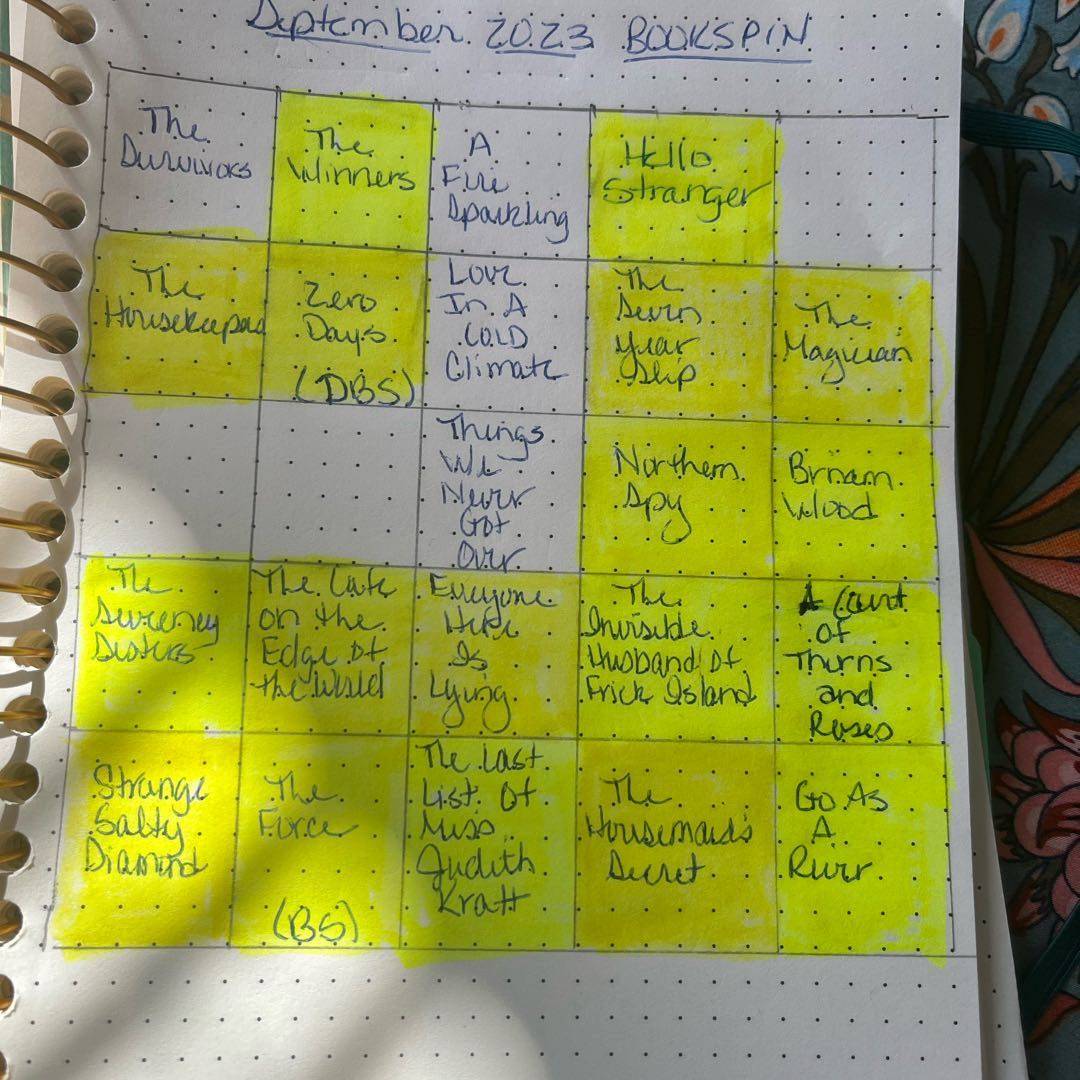 September 2023 BOOKSPIN
The
Survivors
The
Winners
A
Fire
Sparkling
Hello
Stranger
The
Housekeepers
Zero
Days
(DBS)
Love
In A
Cold
Climate
The
Seven
Year
Slip
The
Magician
Things
We
Never
Got
Over
Northern
Spy
Birnam
Wood
The
Sweeney
Sisters
The Cafe
on the
Edge of
the World
Everyone
Here
Is
Lying
The
Invisible
Husband of
Frick Island
A Court
of
Thorns
and
Roses
Strange
Salty
Diamond
The
Force
(BS)
The Last
List of
Miss
Judith
Kratt
The
Housemaid's
Secret
Go As
A
River